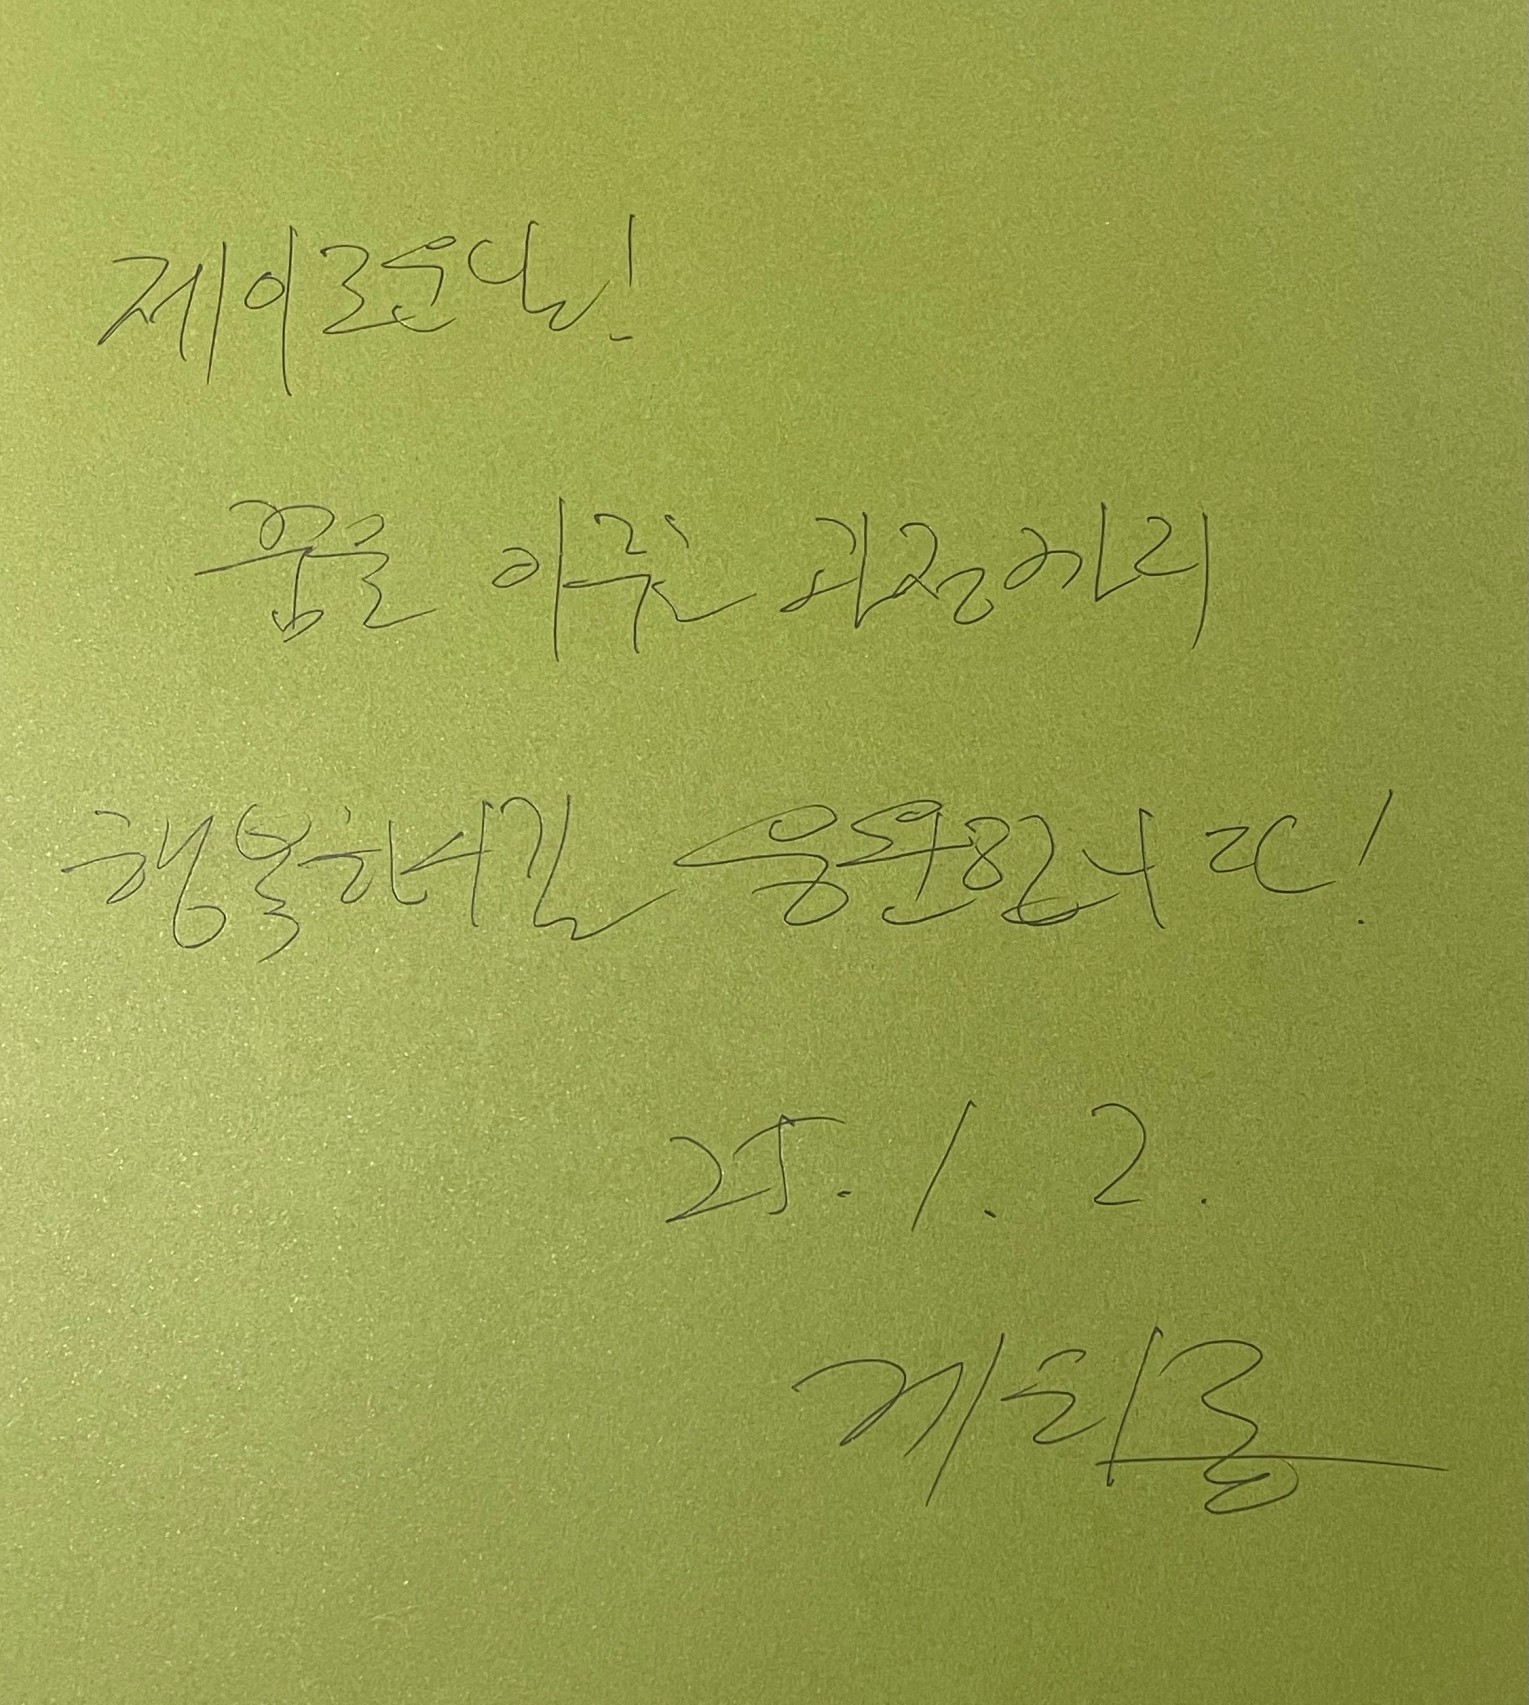 제이로운님!
꿈을 이루는 과정까지
행복하시길 응원합니다!
25. 1. 2.